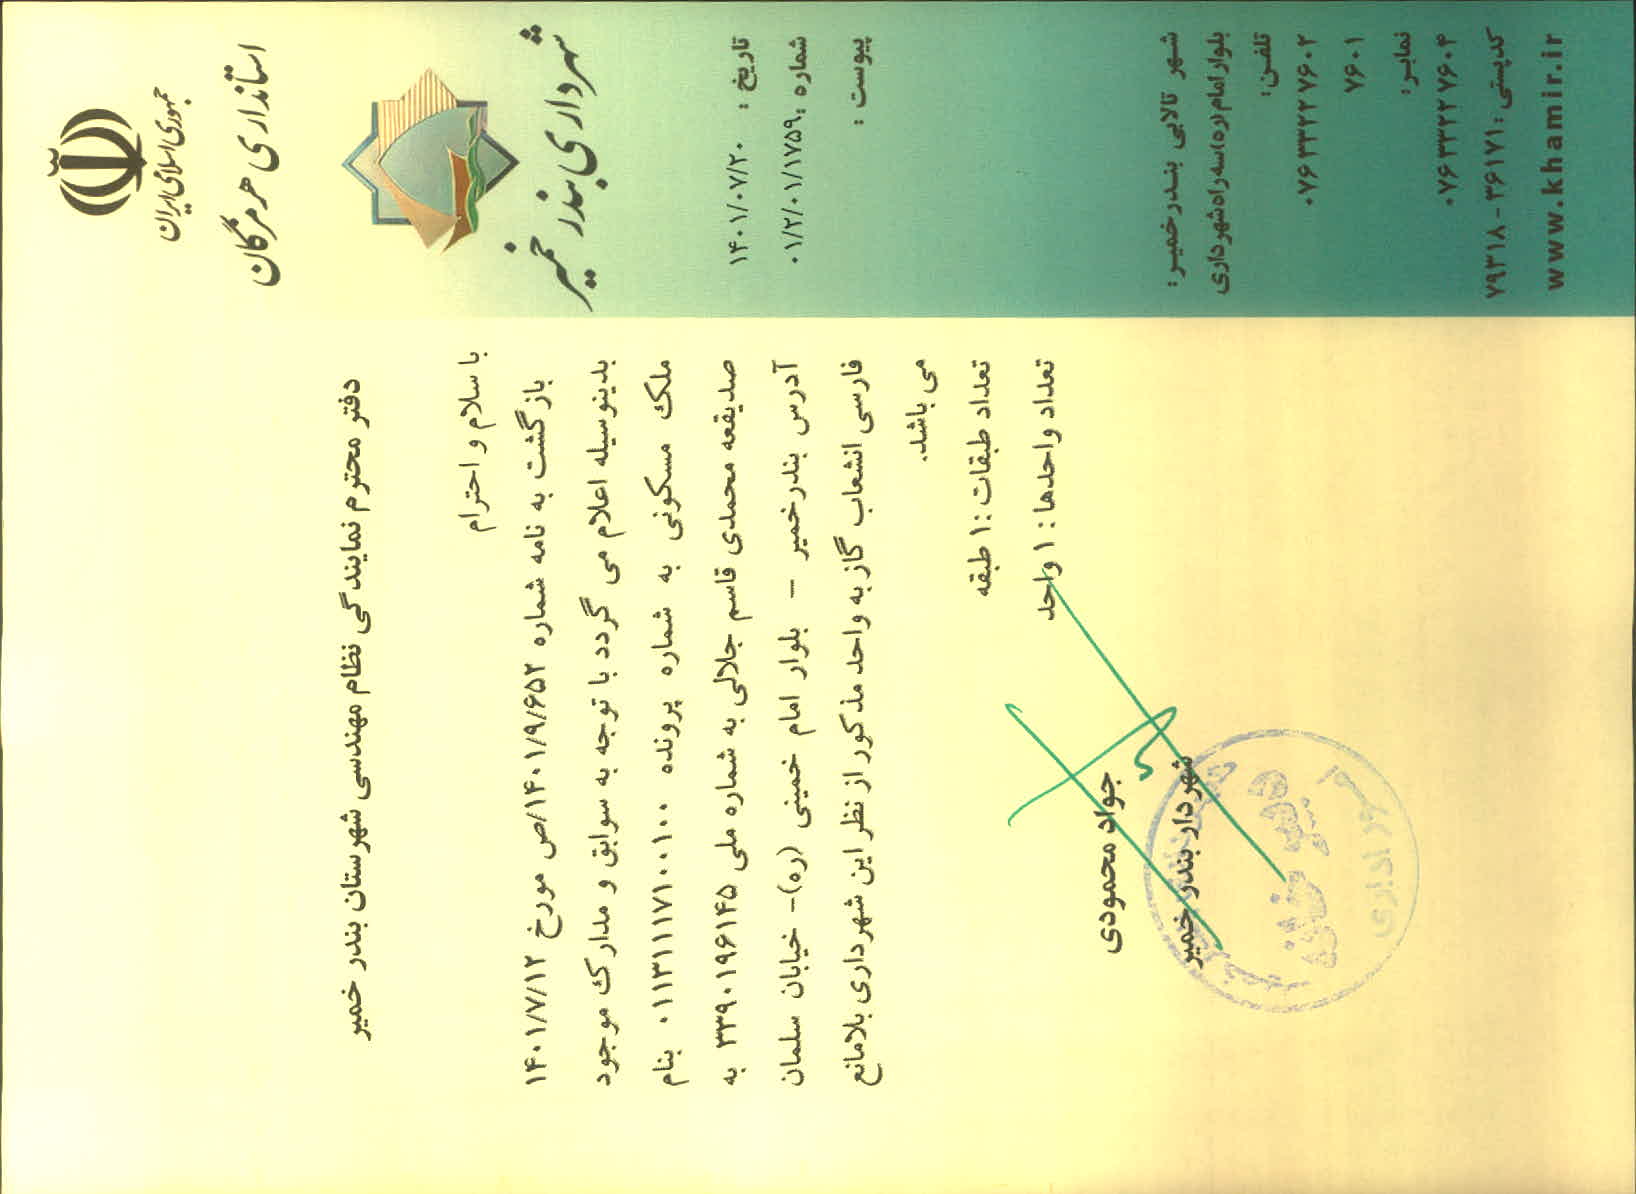 جمهوری اسلامی ایران
استانداری هرمزگان
شهرداری بندر خمیر
تاریخ : ۱۴۰۱/۰۷/۲۰
شماره : ۰۱/۲/۰۱/۱۷۵۹
پیوست :
دفتر محترم نمایندگی نظام مهندسی شهرستان بندر خمیر
با سلام و احترام
بازگشت به نامه شماره ۱۴۰۱/۹/۶۵۲/ص مورخ ۱۴۰۱/۷/۱۲
بدینوسیله اعلام می گردد با توجه به سوابق و مدارک موجود
ملک مسکونی به شماره پرونده ۰۱۱۳۱۱۱۷۱۰۰۱۰۰ بنام
صدیقعه محمدی قاسم جلالی به شماره ملی ۳۳۹۰۱۹۶۱۴۵ به
آدرس بندرخمیر – بلوار امام خمینی (ره)- خیابان سلمان
فارسی انشعاب گاز به واحد مذکور از نظر این شهرداری بلامانع
می باشد.
تعداد طبقات : ۱ طبقه
تعداد واحدها : ۱ واحد
جواد محمودی
شهردار بندر خمیر
امور اداری
شهر تالابی بندرخمیر:
بلوار امام(ره)سه راه شهرداری
تلفن:
۰۷۶۳۳۲۲۷۶۰۲
۷۶۰۱
نمابر:
۰۷۶۳۳۲۲۷۶۰۴
کدپستی : ۳۶۱۷۱-۷۹۳۱۸
www.khamir.ir